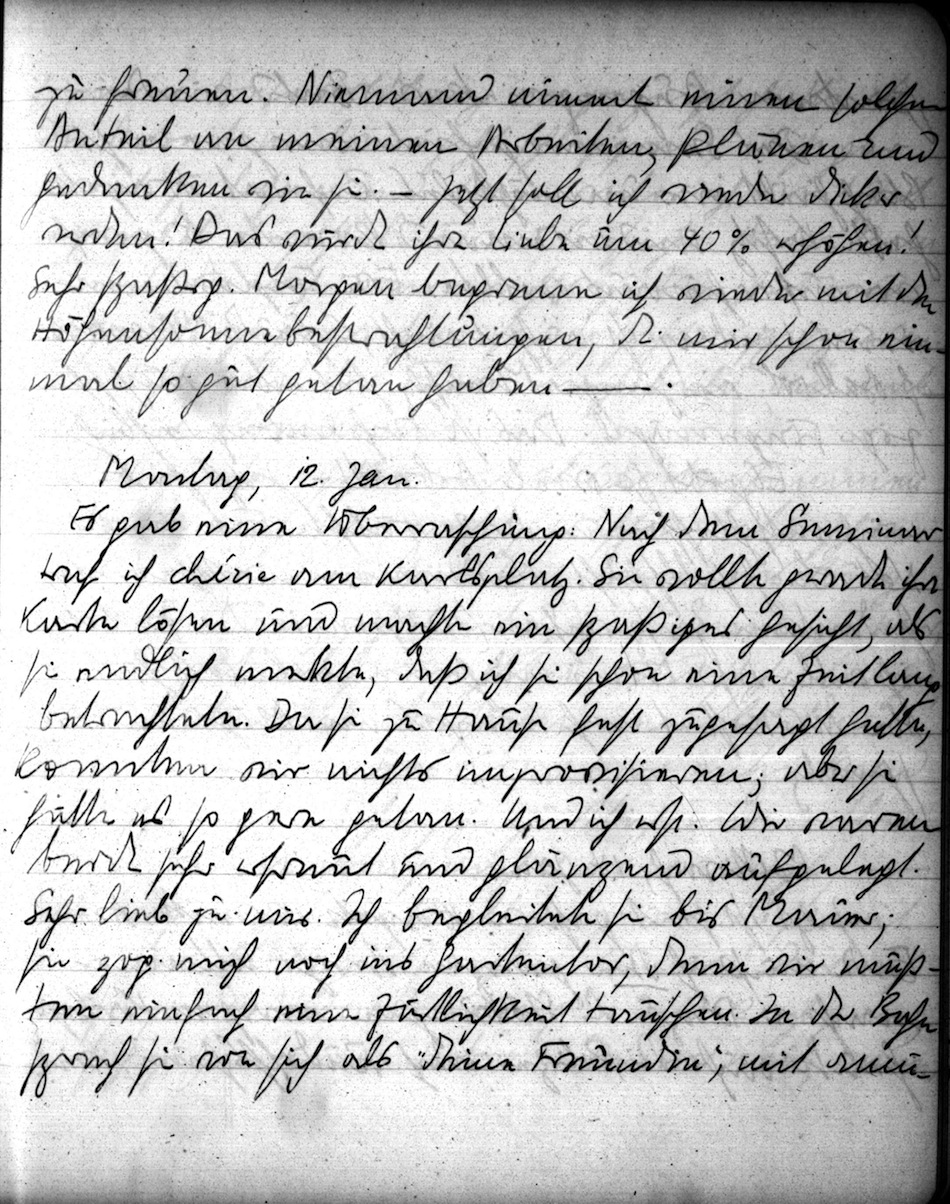 zu freuen. Niemand nimmt einen solchen
Anteil an meinen Arbeiten, Plänen und
Gedanken wie sie. – Jetzt soll ich wieder dicker
werden! Das würde ihre Liebe um 40% erhöhen!
Sehr spaßig. Morgen beginne ich wieder mit den
Höhensonnebestrahlungen, die mir schon ein-
mal so gut getan haben —.
Montag, 12. Jan.
Es gab eine Überraschung: Nach dem Seminar
traf ich am Karlsplatz. Sie wollte gerade ihre
Karte lösen und machte ein spaßiges Gesicht, als
sie endlich merkte, daß ich sie schon eine Zeitlang
betrachtete. Da sie zu Hause fest zugesagt hatte,
konnten wir nichts improvisieren; aber sie
hätte es so gern getan. Und ich erst. Wir waren
beide sehr erfreut und glänzend aufgelegt.
Sehr lieb zu uns. Ich begleitete sie bis Mauer;
sie zog mich noch ins Gartentor, denn wir muß-
ten einfach eine Zärtlichkeit tauschen. In der Bahn
sprach sie von sich als "deine Freundin", mit amü-